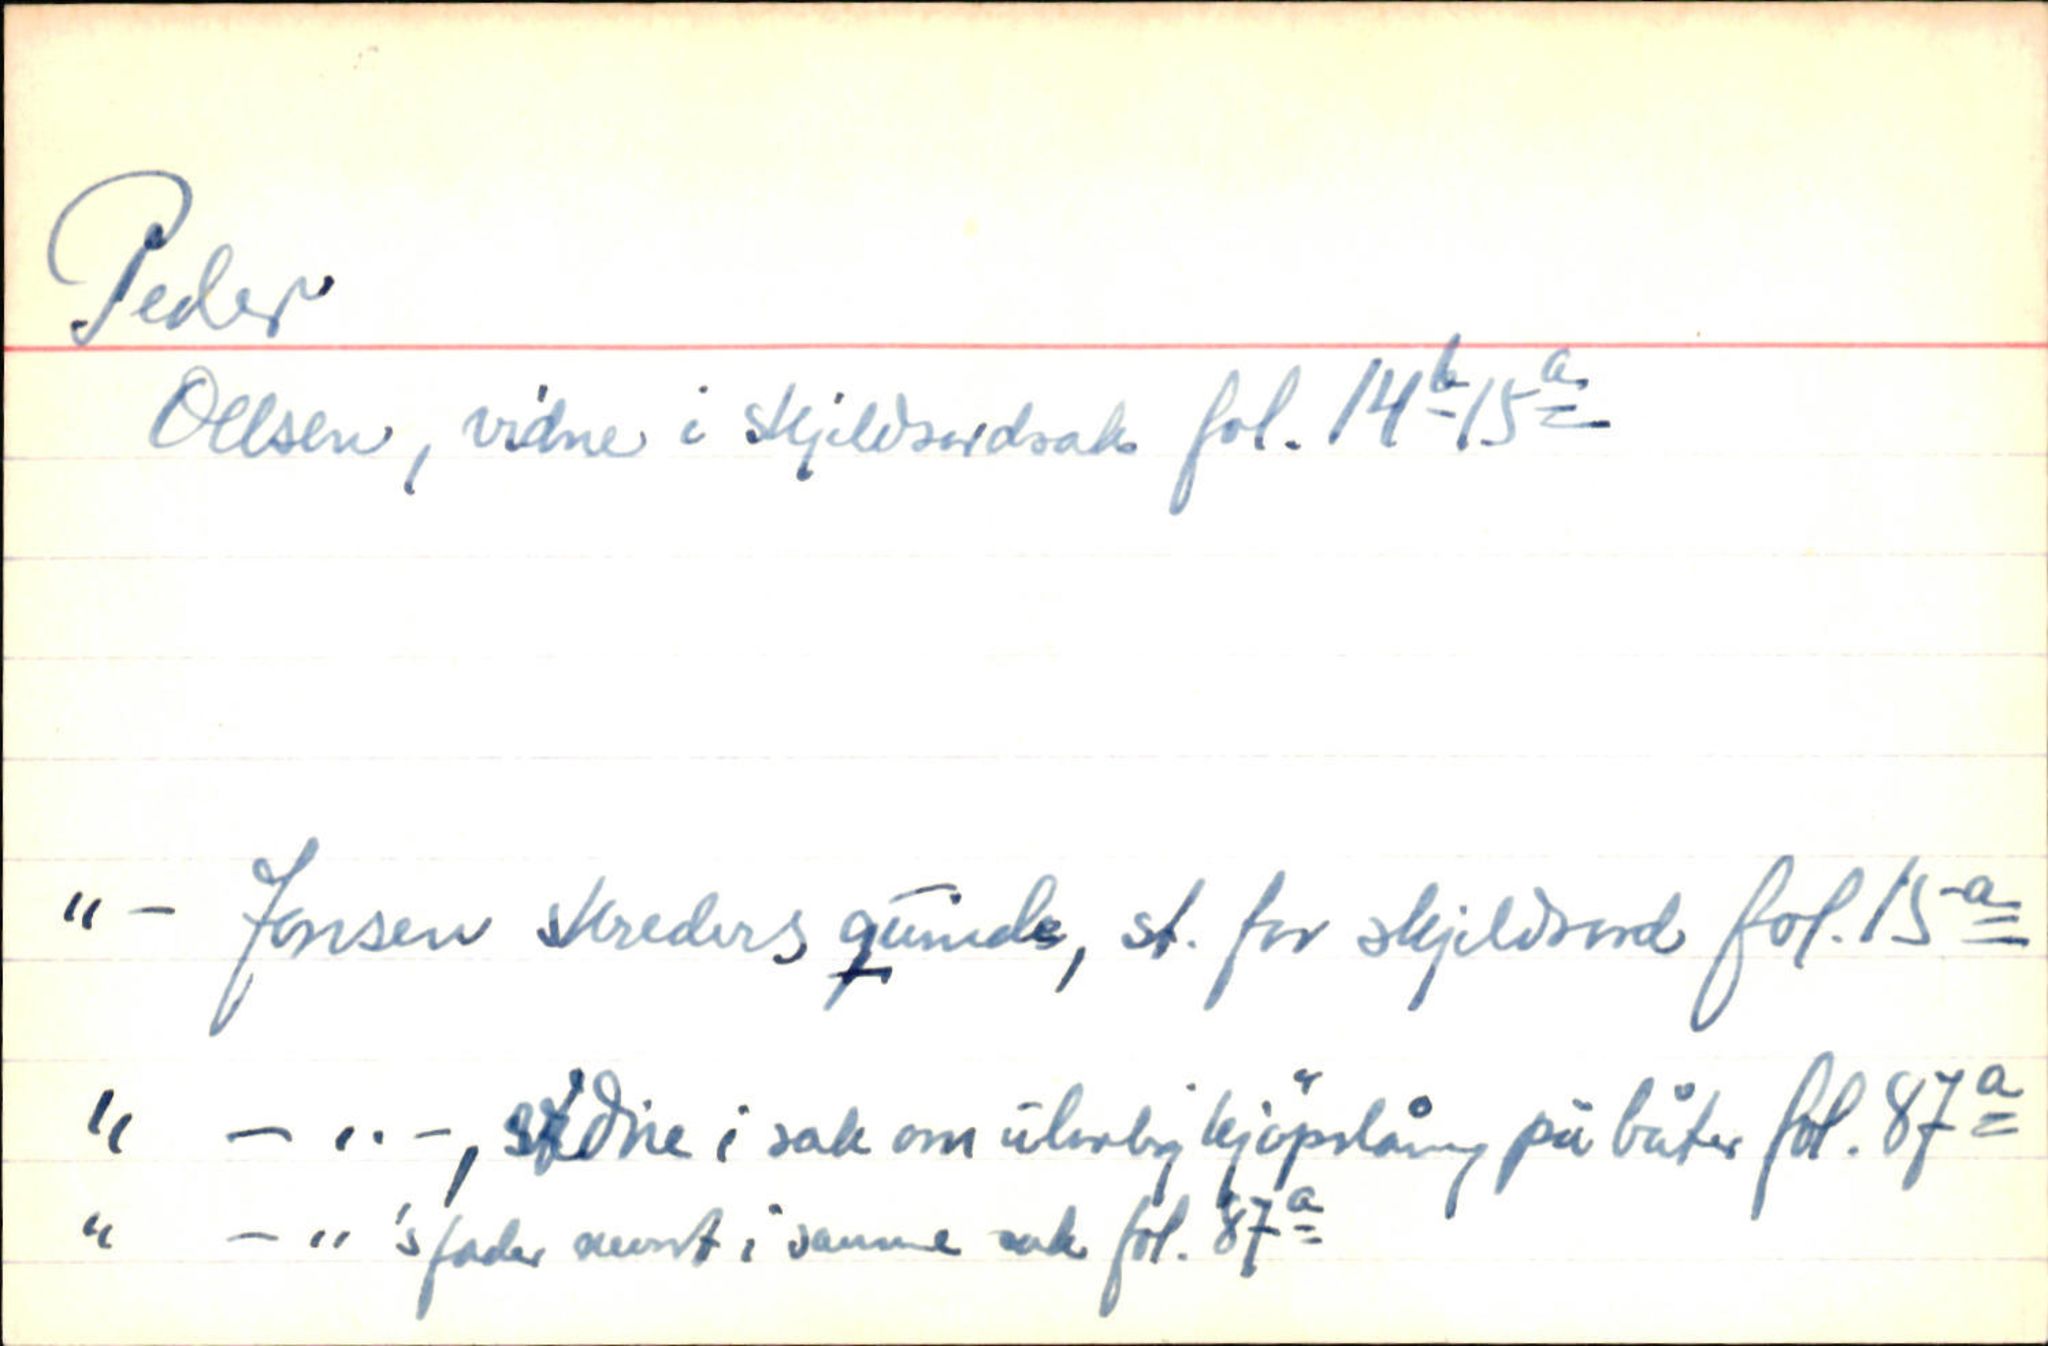 Peder
Ollsen, vidne i skjeldsordsak fol. 14b-15a
" - Jonsen skreders quinde, st. for skjeldsord fol. 15a
" - " -, vidne i sak om ulovlig kjöpslåing på båter fol. 87a
" - " 's fader nevnt i samme sak fol. 87a